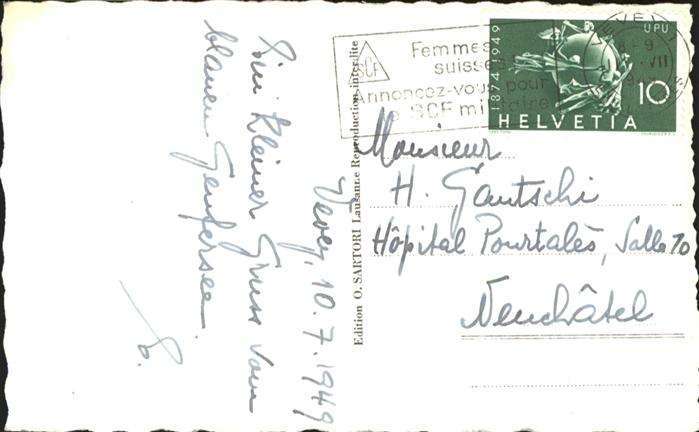 Vevey, 10.7.1949
Ein kleiner Gruss vom
blauen Genfersee.
Edition O. SARTORI Lausanne Reproduction interdite
SCF
Femmes
suisses
Annoncez-vous pour
le SCF militaire
1874-1949
UPU
10
HELVETIA
Monsieur
H. Gautschi
Hôpital Pourtalès, Salle 70
Neuchâtel